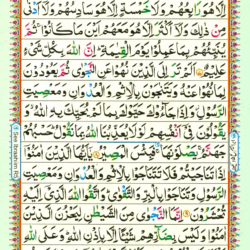 اِلَّا هُوَ رَابِعُهُمْ وَلَا خَمْسَةٍ اِلَّا هُوَ سَادِسُهُمْ وَلَآ اَدْنٰى
مِنْ ذٰلِكَ وَلَآ اَكْثَرَ اِلَّا هُوَ مَعَهُمْ اَيْنَ مَا كَانُوْا ۚ ثُمَّ
يُنَبِّئُهُمْ بِمَا عَمِلُوْا يَوْمَ الْقِيٰمَةِ ؕ اِنَّ اللّٰهَ بِكُلِّ شَيْءٍ
عَلِيْمٌ اَلَمْ تَرَ اِلَى الَّذِيْنَ نُهُوْا عَنِ النَّجْوٰى ثُمَّ يَعُوْدُوْنَ
لِمَا نُهُوْا عَنْهُ وَيَتَنٰجَوْنَ بِالْاِثْمِ وَالْعُدْوَانِ وَمَعْصِيَتِ
الرَّسُوْلِ وَاِذَا جَآءُوْكَ حَيَّوْكَ بِمَا لَمْ يُحَيِّكَ بِهِ اللّٰهُ وَ
يَقُوْلُوْنَ فِيْٓ اَنْفُسِهِمْ لَوْلَا يُعَذِّبُنَا اللّٰهُ بِمَا نَقُوْلُ حَسْبُهُمْ
جَهَنَّمُ يَصْلَوْنَهَا فَبِئْسَ الْمَصِيْرُ يٰٓاَيُّهَا الَّذِيْنَ اٰمَنُوْٓا
اِذَا تَنَاجَيْتُمْ فَلَا تَتَنَاجَوْا بِالْاِثْمِ وَالْعُدْوَانِ وَمَعْصِيَتِ
الرَّسُوْلِ وَتَنَاجَوْا بِالْبِرِّ وَالتَّقْوٰى وَاتَّقُوا اللّٰهَ الَّذِيْٓ اِلَيْهِ
تُحْشَرُوْنَ اِنَّمَا النَّجْوٰى مِنَ الشَّيْطٰنِ لِيَحْزُنَ الَّذِيْنَ
اٰمَنُوْا وَلَيْسَ بِضَآرِّهِمْ شَيْـًٔا اِلَّا بِاِذْنِ اللّٰهِ وَعَلَى اللّٰهِ